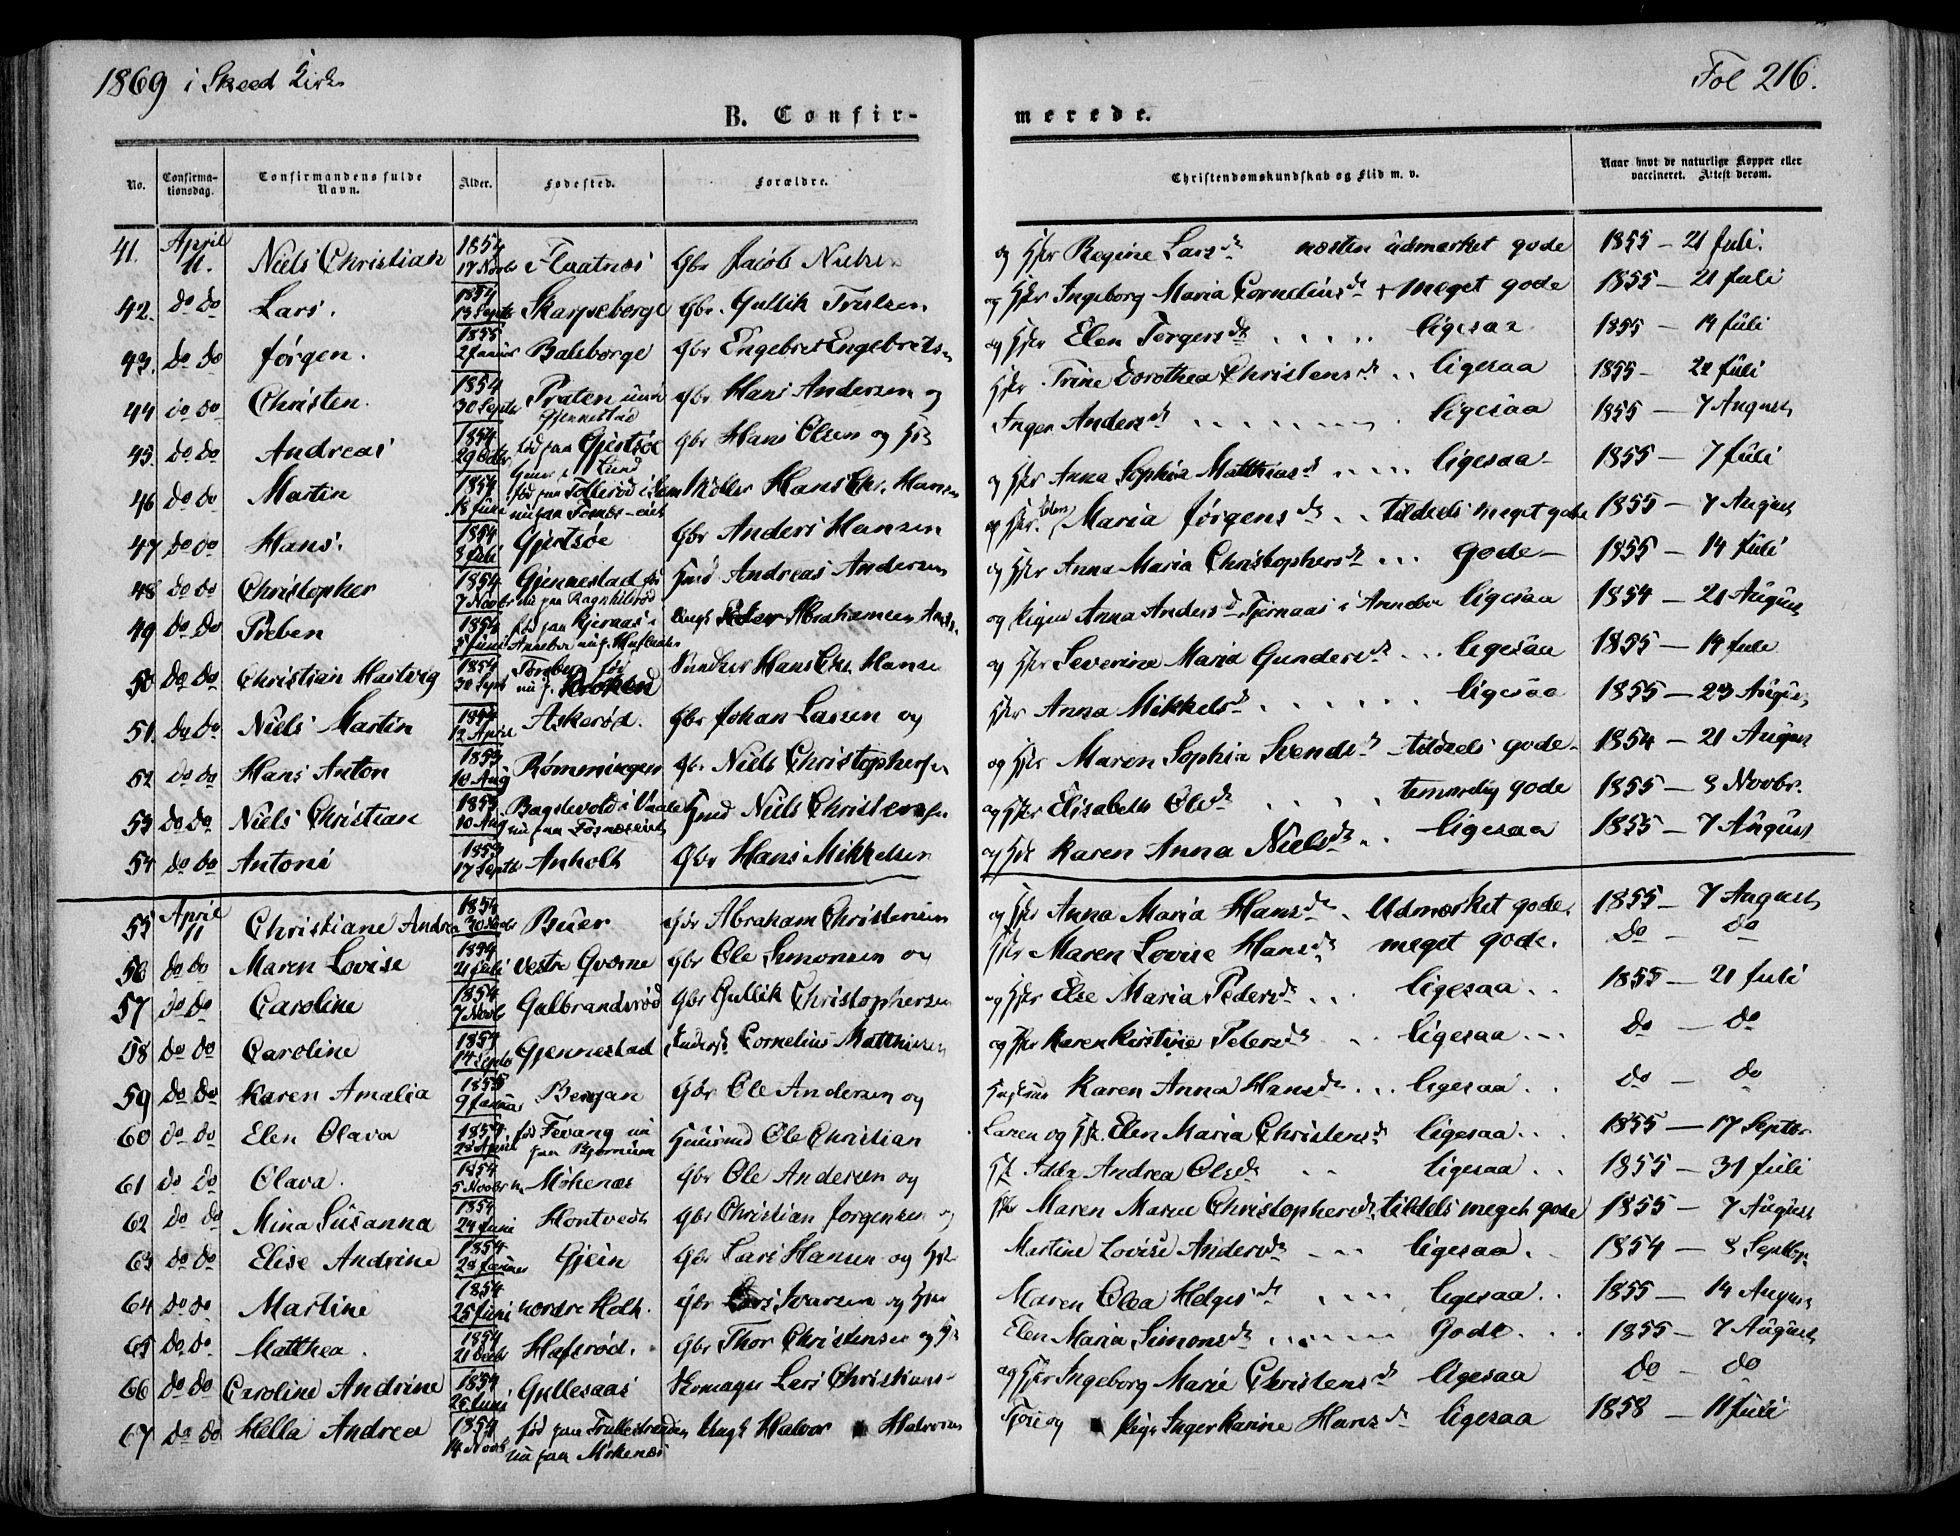 1869 i Skeed Kirke
Fol 216.
B. Confir-
merede.
No.
Confirma-
tionsdag.
Confirmandens fulde
Navn.
Alder.
Fødested.
Forældre.
Christendomskundskab og Flid m. v.
Naar havt de naturlige Kopper eller
vaccineret. Attest derom.
41. April 11. Niels Christian 1854 17 Novbr Flaatnæs Gbr Jacob Nielsen og Hstr Regine Larsdr næsten udmærket gode 1855 – 21 Juli.
42. do do Lars. 1854 13 Septr Skarpseberge Gbr. Gullik Trulsen og Hstr Ingeborg Maria Corneliusdr + meget gode 1855 – 21 Juli
43. do do Jørgen. 1855 2 Januar Basberge Gbr Engebret Engebretsen og Hstr Elen Torgersdr ligesaa 1855 – 14 Juli
44 do do Christen. 1854 30 Septr Praten Gjennestad Gbr Hans Andersen og Hstr Trine Dorothea Christensdr ligesaa 1855 – 21 Juli
45. do do Andreas 1854 29 Octbr fød paa Gjertsøe Gbr Hans Olsen og Inger Andersdr ligesaa 1855 – 7 August
46 do do Martin 1854 18 Juni fød paa nu paa Møller Hans Chr. Hansen og Hstr Anna Sophia Matthiasdr ligesaa 1855 – 7 Juli
47 do do Hans. 1854 8 Juli Gjertsøe Gbr Anders Hansen og Hstr. Maria Jørgensdr tildeels meget gode 1855 – 7 August
48 do do Christopher 1854 7 Novbr Gjennestad nu paa Ragnhilsrød Hmd Andreas Andersen og Hstr Anna Maria Christophersdr gode – 1855 – 14 Juli
49 do do Preben 1854 5 Juni fød paa Ungk Abrahamsen og Pigen Anna Andersdr Tjernaas i Annebu ligesaa 1854 – 21 August
50 do do Christian Hartvig 1854 30 Septr Hans Chr. Hansen og Hstr Severine Maria Gundersdr ligesaa 1855 – 14 Juli
51. do do Niels Martin 12 April Askerød. Gbr Johan Larsen og Hstr Anna Mikkelsdr ligesaa 1855 – 23 August
52 do do Hans Anton 1853 10 Aug Rømmingen Gbr. Niels Christophersen og Hstr Maren Sophia Svendsdr tildeels gode – 1854 – 21 August
53 do do Niels Christian 10 Aug nu paa Hmd Niels Christensen og Hstr Elisabeth Olsdr temmelig gode 1855 – 8 Novbr.
54 do do Antoni 17 Septr Anholt Gbr Hans Mikkelsen og Hstr Karen Anna Nielsdr ligesaa 1855 – 7 August
55 April 11 Christiane Andrea 1854 Buer Gbr Abraham Christensen og Hstr Anna Maria Hansdr Udmærket gode. 1855 – 7 August
56 do do Maren Lovise 1854 21 Juli Vestre Qværne Gbr Ole Simonsen og Hstr Maren Lovise Hansdr meget gode. do – do
57 do do Caroline 1854 7 Novbr Gulbrandsrød Gbr Gullik Christophersen og Hstr Else Maria Pedersdr ligesaa 1855 – 21 Juli
58 do do Caroline 1854 14 Septr Gjennestad Cornelius Matthisen og Hstr Karen Kirstine Pedersdr ligesaa do – do
59 do do Karen Amalia 1855 9 Januar Bergan Gbr Ole Andersen og Karen Anna Hansdr ligesaa do – do
60 do do Elen Olava 28 April fød Fevang nu paa Bjørnum Huusmd Ole Christian Larsen og Hst. Elen Maria Christensdr ligesaa 1855 – 17 Septbr
61 do do Olava. 1854 5 Novbr Møkenæs Gbr Ole Andersen og Andrea Olsdr ligesaa 1855 – 31 Juli
62 do do Mina Susanna 1854 24 Juni Hontvedt Gbr Christian Jørgensen og Hstr Maren Marie Christophersdr tildels meget gode 1855 – 7 August
63 do do Elise Andrine 1854 28 Januar Gjein Gbr Lars Hansen og Hstr Martine Lovise Andersdr ligesaa 1854 – 8 Septbr
64 do do Martine 1854 25 Juni nordre Holt. Gbr Lars Ivarsen og Hstr Maren Olea Helgesdr ligesaa 1855 – 14 August
65 do do Matthea. 1854 Hafsrød. Gbr Thor Christensen og Hstr Elen Maria Simonsdr Gode. 1855 – 7 August
66 do do Caroline Andrine 1854 25 Juni Gullesaas Skomager Lars Christians- og Hstr Ingeborg Marie Christensdr ligesaa do – do
67 do do Hella Andrea 1854 14 Novbr fød paa nu paa Møkenæs Ungk Halvor Halvorsen og Pige Inger Karine Hansdr ligesaa 1858 – 11 Juli